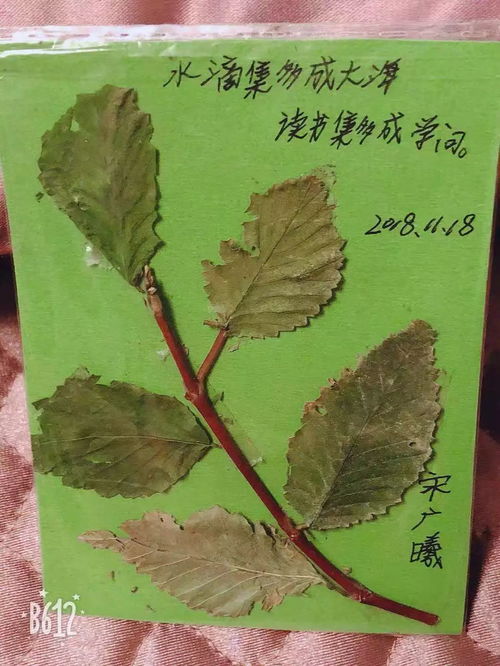 水滴集多成大洋
读书集多成学问。
2018.11.18
宋广曦
B612